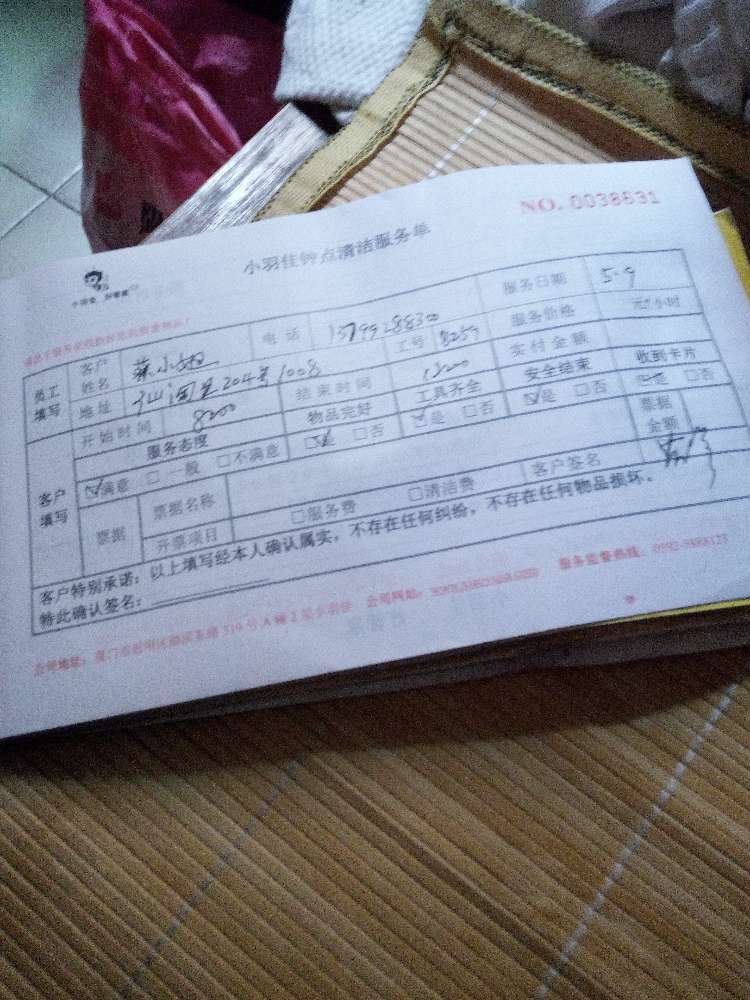 NO. 0038631
小羽佳钟点清洁服务单
小羽佳
员工填写 客户姓名 蔡小姐 电话 服务日期 5.9
地址 204号1008 工号 8259 服务价格 元/小时
开始时间 8:00 结束时间 12:00 实付金额
客户填写 服务态度 物品完好 工具齐全 安全结束 收到卡片
☑满意 □一般 □不满意 ☑是 □否 ☑是 □否 ☑是 □否 ☑是 □否
票据 票据名称 票据金额
开票项目 □服务费 □清洁费 客户签名
客户特别承诺：以上填写经本人确认属实，不存在任何纠纷，不存在任何物品损坏。
特此确认签名：
公司地址：厦门市思明区 319号A幢2 小羽佳 公司网站： 服务监督热线：